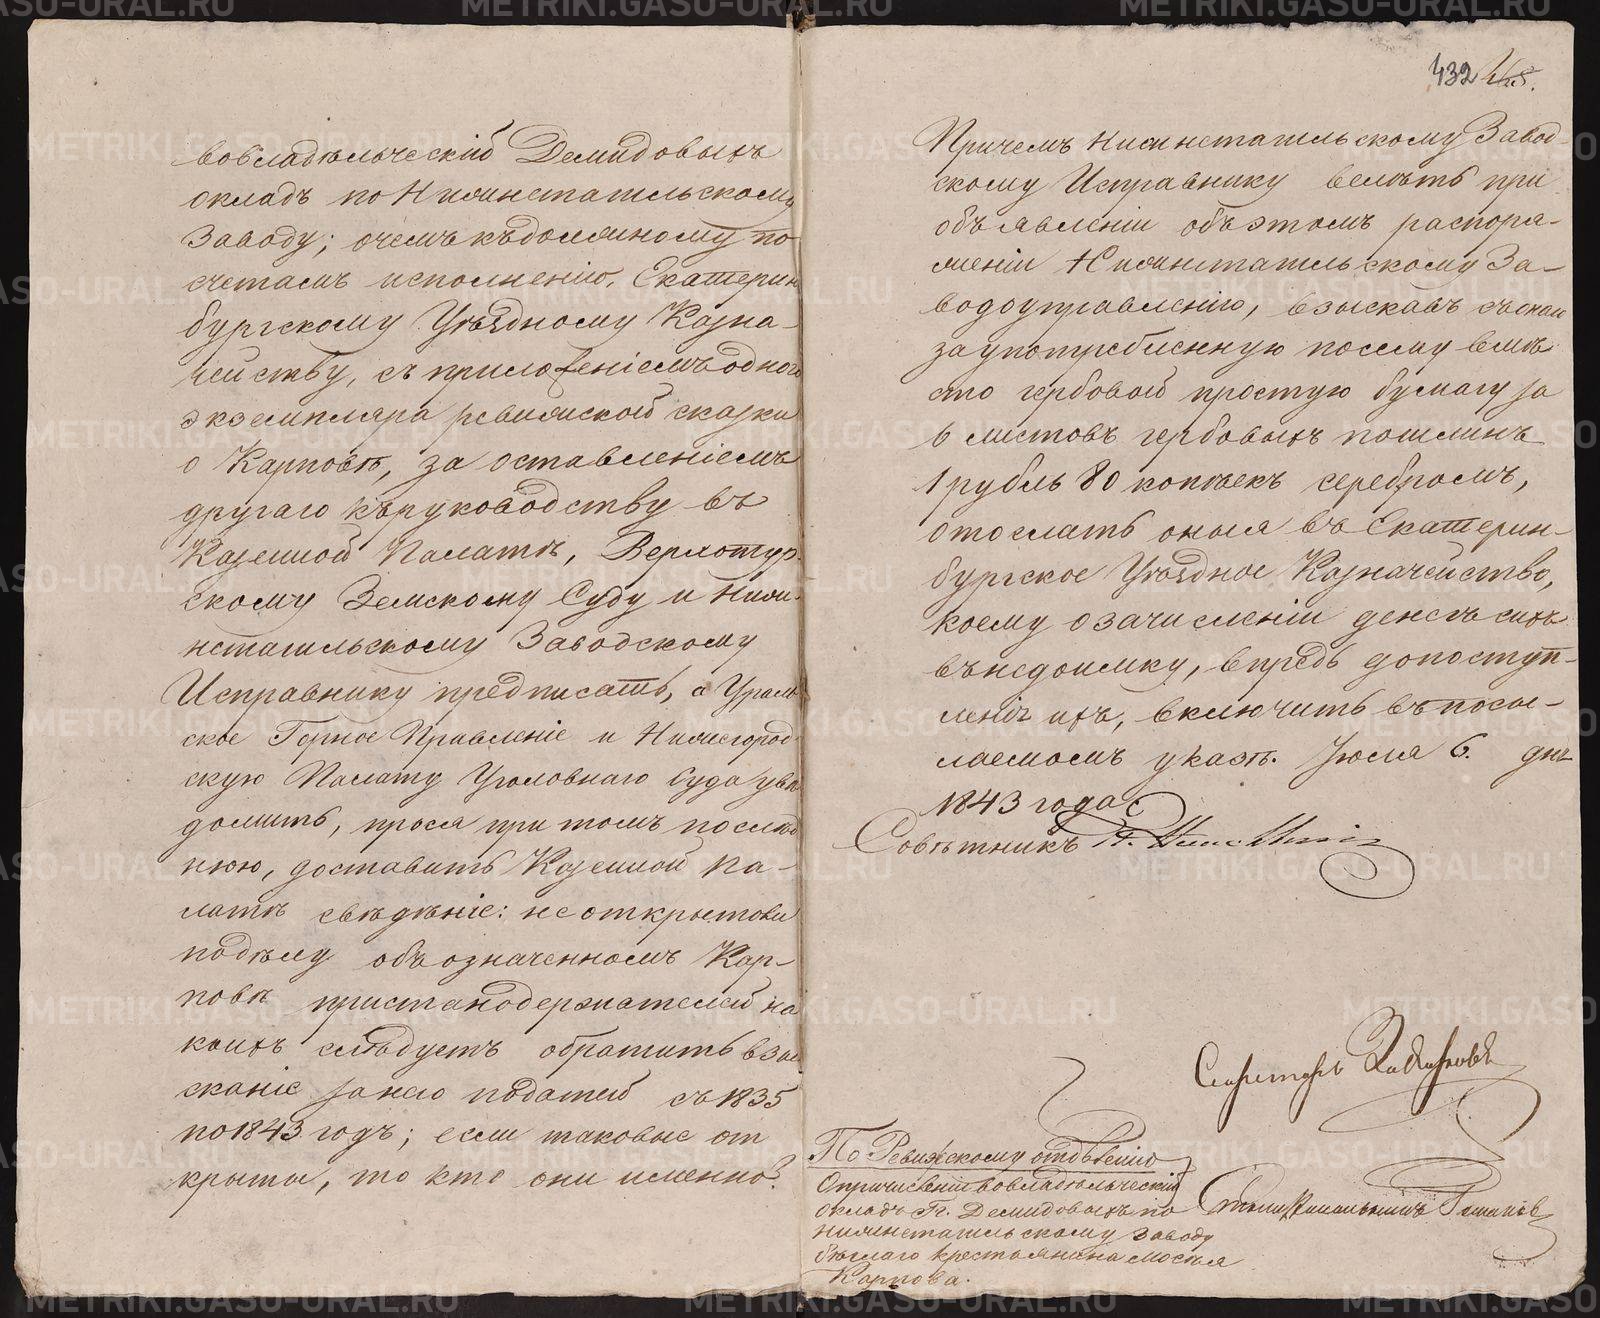 вовладѣльческій Демидовыхъ
окладъ по Нижнетагильскому
Заводу; о чемъ къ должному по
счетамъ исполненію, Екатерин
бургскому Уѣздному Казна-
чейству, съ приложеніемъ одного
экземпляра ревижской сказки
о Карповѣ, за оставленіемъ
другаго къ руководству въ
Казенной Палатѣ, Верхотур-
скому Земскому Суду и Нижн-
нетагильскому Заводскому
Исправнику предписать, а Ураль
ское Горное Правленіе и Нижегород-
скую Палату Уголовнаго Суда увѣ
домить, прося при томъ послѣд
нюю, доставить Казенной Па-
латѣ свѣдѣніе: не открыто ли
по дѣлу объ означенномъ Кар-
повѣ пристанодержателей на
коихъ слѣдуетъ обратить взы
сканіе за него податей съ 1835
по 1843 годъ; если таковые от
крыты, то кто они именно?
432
Причемъ Нижнетагильскому Завод-
скому Исправнику велѣть при
объявленіи объ этомъ распоря-
женіи Нижнетагильскому За-
водоуправленію, взыскавъ съ онаго
за употребленную по сему вмѣ
сто гербовой простую бумагу за
6 листовъ гербовыхъ пошлинъ
1 рубль 80 копѣекъ серебромъ,
отослать оныя въ Екатерин-
бургское Уѣздное Казначейство,
коему о зачисленіи денегъ сихъ
въ недоимку, впредь до поступ-
ленія ихъ, включить въ посы-
лаемомъ указѣ. Іюля 6. дня
1843 года.
Совѣтникъ
Секретарь
По Ревижскому отдѣленію
О причисленіи вовладѣльческій
окладъ Гг. Демидовыхъ по
Нижнетагильскому заводу
бѣглаго крестьянина Моисея
Карпова.
Столоначальникъ
METRIKI.GASO-URAL.RU